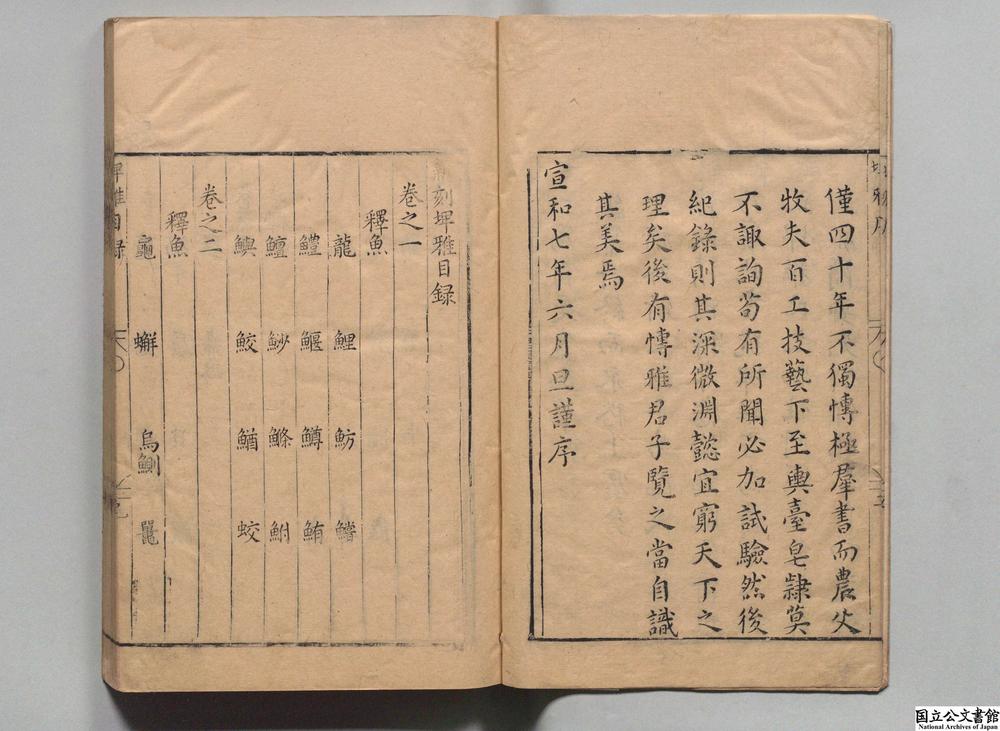 僅四十年不獨愽極羣書而農父
牧夫百工技藝下至輿臺皂隸莫
不諏詢苟有所聞必加試驗然後
紀錄則其深微淵懿宜窮天下之
理矣後有愽雅君子覽之當自識
其美焉
宣和七年六月旦謹序
刻埤雅目録
卷之一
釋魚
龍 鯉 魴 鱨
鱧 鰋 鱒 鮪
鱣 魦 鰷 鮒
鱮 鮫 鰌 蛟
卷之二
釋魚
龜 蠏 烏鰂 鼉
埤雅目録
国立公文書館
National Archives of Japan